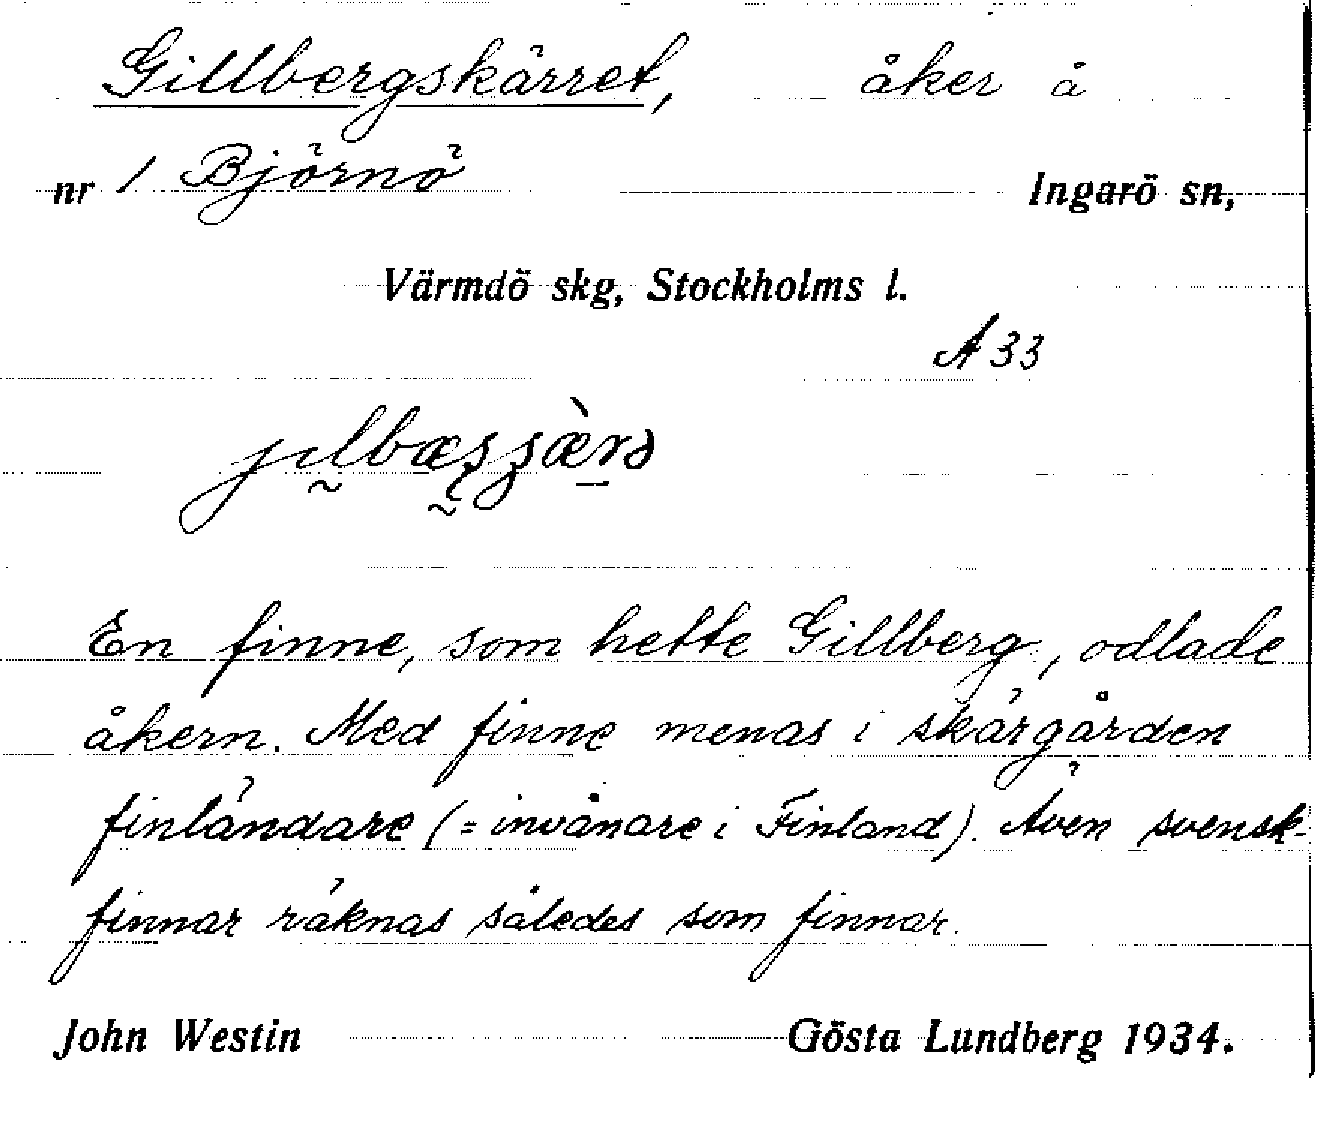 Gillbergskärret, åker å
nr 1 Björnö Ingarö sn,
Värmdö skg, Stockholms l.
A 33
En finne, som hette Gillberg, odlade
åkern. Med finne menas i skärgården
finländare (= invånare i Finland). Även svensk-
finnar räknas således som finnar.
John Westin Gösta Lundberg 1934.